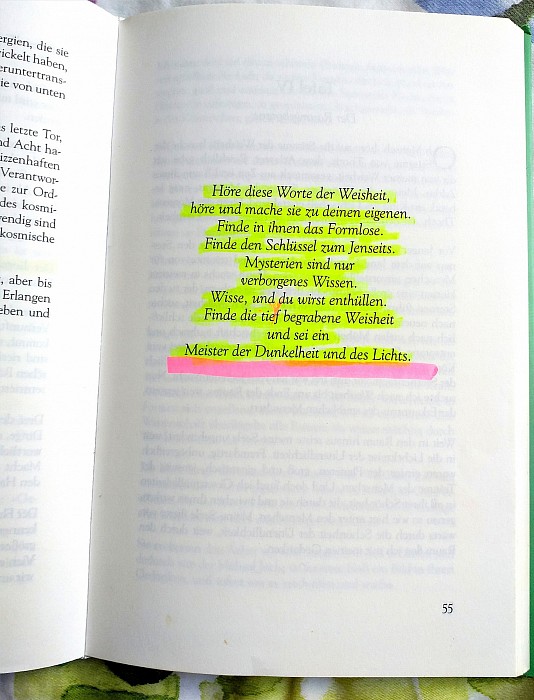 ergien, die sie
ickelt haben,
eruntertrans-
ie von unten
s letzte Tor,
nd Acht ha-
izzenhaften
Verantwor-
e zur Ord-
des kosmi-
vendig sind
kosmische
, aber bis
Erlangen
eben und
Höre diese Worte der Weisheit,
höre und mache sie zu deinen eigenen.
Finde in ihnen das Formlose.
Finde den Schlüssel zum Jenseits.
Mysterien sind nur
verborgenes Wissen.
Wisse, und du wirst enthüllen.
Finde die tief begrabene Weisheit
und sei ein
Meister der Dunkelheit und des Lichts.
55